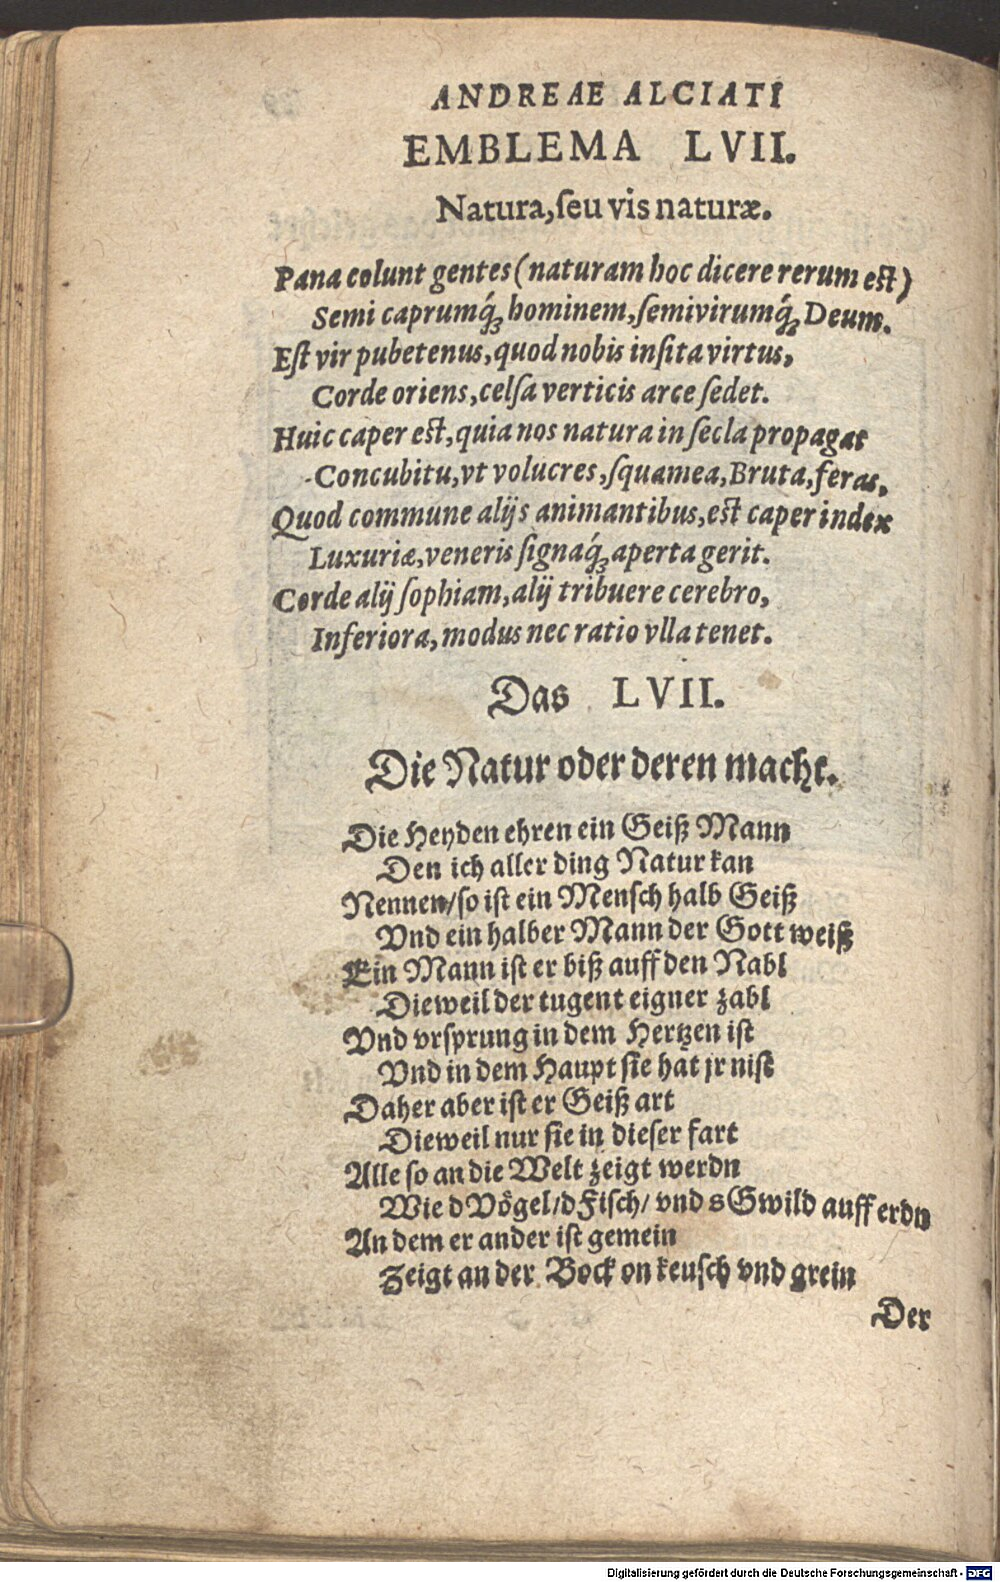 ANDREAE ALCIATI
EMBLEMA LVII.
Natura, ſeu vis naturæ.
Pana colunt gentes (naturam hoc dicere rerum eſt)
Semi caprumq́ꝫ hominem, ſemivirumq́ꝫ Deum.
Eſt vir pubetenus, quod nobis inſita virtus,
Corde oriens, celſa verticis arce ſedet.
Huic caper eſt, quia nos natura in ſecla propagat
Concubitu, vt volucres, ſquamea, Bruta, feras,
Quod commune alijs animantibus, eſt caper index
Luxuriæ, veneris ſignaq́ꝫ aperta gerit.
Corde alij ſophiam, alij tribuere cerebro,
Inferiora, modus nec ratio vlla tenet.
Das LVII.
Die Natur oder deren macht.
Die Heyden ehren ein Geiß Mann
Den ich aller ding Natur kan
Nennen/ so ist ein Mensch halb Geiß
Vnd ein halber Mann der Gott weiß
Ein Mann ist er biß auff den Nabl
Dieweil der tugent eigner zabl
Vnd vrsprung in dem Hertzen ist
Vnd in dem Haupt sie hat jr nist
Daher aber ist er Geiß art
Dieweil nur sie in dieser fart
Alle so an die Welt zeigt werdn
Wie d Vögel/ d Fisch/ vnd s Gwild auff erdn
An dem er ander ist gemein
Zeigt an der Bock on keusch vnd grein
Der
Digitalisierung gefördert durch die Deutsche Forschungsgemeinschaft - DFG